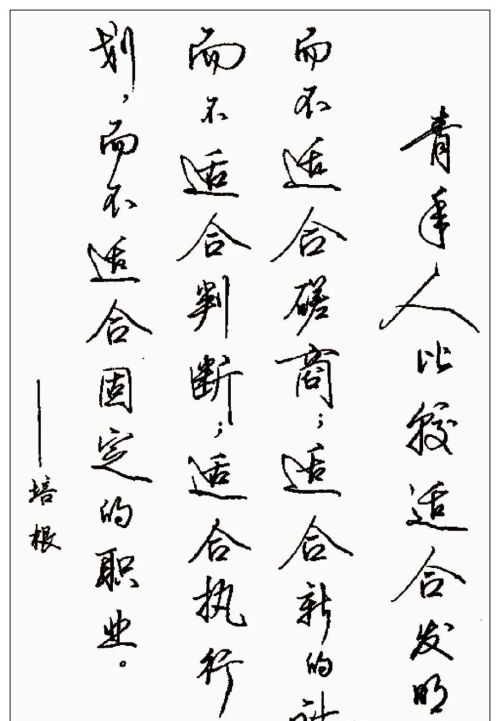 青年人比较适合发明
而不适合磋商；适合新的计
而不适合判断；适合执行
划，而不适合固定的职业。
——培根